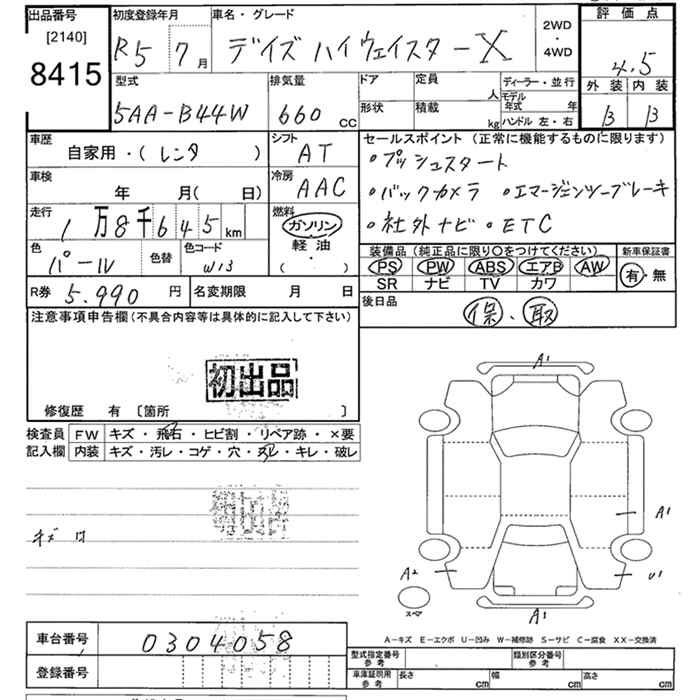 出品番号
[2140]
8415
初度登録年月
R5 7月
車名・グレード
デイズ ハイウェイスターX
2WD
・
4WD
評価点
4.5
外装 内装
B B
型式
5AA-B44W
排気量
660 CC
ドア
形状
定員 人
積載 kg
ディーラー・並行
モデル年式 年
ハンドル 左・右
車歴
自家用・(レンタ )
シフト
AT
車検
年 月( 日)
冷房
AAC
走行
1万8千645km
燃料
ガソリン
軽油
( ・ )
色
パール
色替
色コード
W13
セールスポイント (正常に機能するものに限ります)
・プッシュスタート
・バックカメラ ・エマージェンシーブレーキ
・社外ナビ ・ETC
装備品 (純正品に限り○をつけてください)
PS PW ABS エアB AW
SR ナビ TV カワ
新車保証書
有・無
R券 5.990円
名変期限 月 日
後日品
保、取
注意事項申告欄 (不具合内容等は具体的に記入して下さい)
初出品
修復歴 有 〔箇所 〕
検査員
記入欄
FW キズ・飛石・ヒビ割・リペア跡・×要
内装 キズ・汚レ・コゲ・穴・スレ・キレ・破レ
初出品
キズ
A1
A1
A2
U1
スペア
A1
A-キズ E-エクボ U-凹み W-補修跡 S-サビ C-腐食 XX-交換済
車台番号 0304058
登録番号
型式指定番号
参考
類別区分番号
参考
車庫証明用
参考
長さ cm
幅 cm
高さ cm